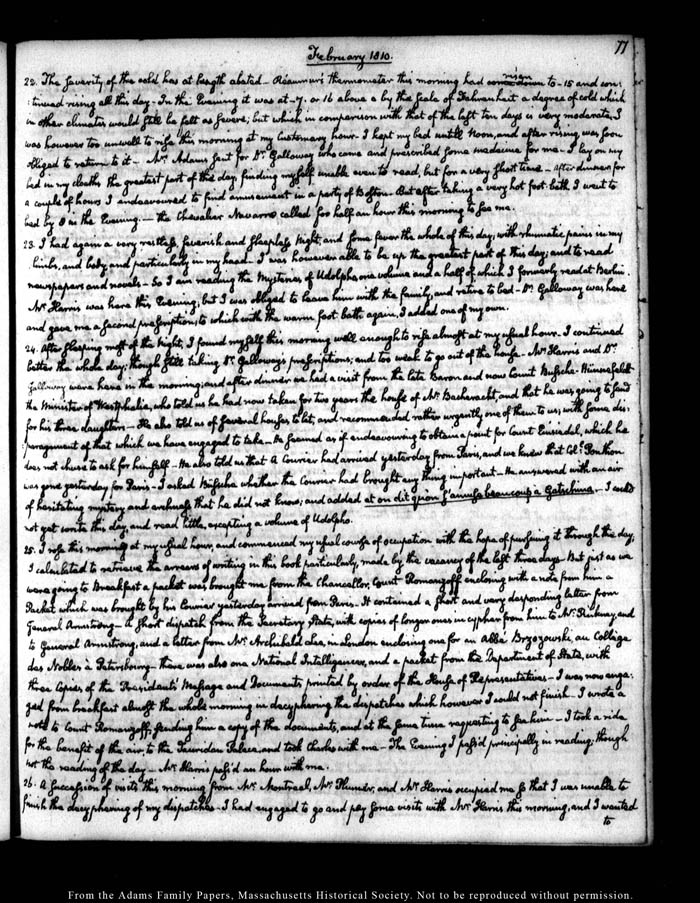 February 1810.
77
22. The severity of the cold has at length abated — Reaumur's thermometer this morning had risen to -15 and con-
:tinued rising all this day. In the Evening it was at -7. or 16 above 0 by the scale of Fahrenheit a degree of cold which
in other climates would still be felt as severe; but which in comparison with that of the last ten days is very moderate. I
was however too unwell to rise this morning at my customary hour. I kept my bed until Noon, and after rising was soon
obliged to return to it — Mrs. Adams sent for Dr. Galloway who came and prescribed some medicine for me — I lay on my
bed in my cloaths the greatest part of the day finding myself unable even to read, but for a very short time — After dinner for
a couple of hours I endeavoured to find amusement in a party of Boston. But after taking a very hot foot bath I went to
bed by 8 in the Evening. — The Chevalier Navarro called for half an hour this morning to see me.
23. I had again a very restless, feverish and sleepless Night, and some fever the whole of this day; with rhumatic pains in my
limbs, and body, and particularly in my head — I was however able to be up the greatest part of this day; and to read
newspapers and novels — So I am reading the Mysteries of Udolpho, one volume and a half of which I formerly read at Berlin.
Mr. Harris was here this Evening, but I was obliged to leave him with the family, and retire to bed — Dr. Galloway was here
and gave me a second prescription; to which with the warm foot bath again, I added one of my own.
24. After sleeping most of the Night, I found myself this morning well enough to rise almost at my usual hour. I continued
better the whole day: though still taking Dr. Galloway's prescriptions; and too weak to go out of the house — Mr. Harris and Dr.
Galloway were here in the morning; and after dinner we had a visit from the late Baron and now Count Bussche-Hünnefeldt
the Minister of Westphalia, who told us he had now taken for two years the house of Mr. Bacheracht, and that he was going to send
for his three daughters — He also told us of several houses to let, and recommended rather urgently, one of them to us; with some dis-
paragement of that which we have engaged to take — He seemed as if endeavouring to obtain a point for Count Einsiedel, which he
does not chuse to ask for himself — He also told us that a Courier had arrived yesterday from Paris, and we knew that Coll. Ponthon
was gone yesterday for Paris — I asked Bussche whether the Courier had brought any thing important — He answered with an air
of hesitating mystery and archness that he did not know; and added et on dit qu'on s'amuse beaucoup à Gatschina. — I could
not yet write this day, and read little, excepting a volume of Udolpho.
25. I rose this morning at my usual hour, and commenced my usual course of occupation with the hope of pursuing it through the day;
I calculated to retrieve the arrears of writing in this book particularly, made by the vacancy of the last three days. But just as we
were going to Breakfast a packet was brought me from the Chancellor, Count Romanzoff enclosing with a note from him a
Packet which was brought by his Courier yesterday arrived from Paris — It contained a short and very desponding letter from
General Armstrong — A short dispatch from the Secretary of State, with copies of longer ones in cypher from him to Mr. Pinkney, and
to General Armstrong, and a letter from Mr. Archibald Lea, in London enclosing one for an Abbé Brzozowski, au Collège
des Nobles à Petersbourg — There was also one National Intelligencer, and a packet from the Department of State, with
three Copies of the President's Message and Documents printed by order of the House of Representatives — I was now enga-
ged from breakfast almost the whole morning in decyphering the dispatches which however I could not finish. I wrote a
note to Count Romanzoff, sending him a copy of the documents, and at the same time requesting to see him — I took a ride
for the benefit of the air to the Tauridan Palace, and took Charles with me — The Evening I pass'd principally in reading; though
not the reading of the day — Mr. Harris pass'd an hour with me.
26. A succession of visits this morning from Mr. Montreal, Mr. Plummer, and Mr. Harris occupied me so that I was unable to
finish the decyphering of my dispatches — I had engaged to go and pay some visits with Mr. Harris this morning, and I wanted
to
From the Adams Family Papers, Massachusetts Historical Society. Not to be reproduced without permission.